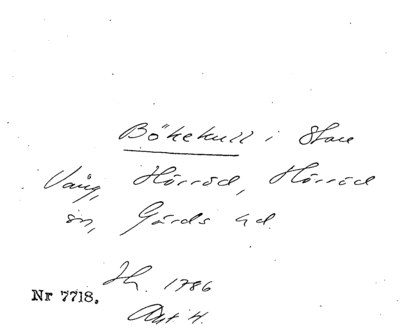 Bökekull i Stora
Vång, Hörröd, Hörröd
sn, Gärds hd.
Sk. 1786
Nr 7718.
Akt 4.